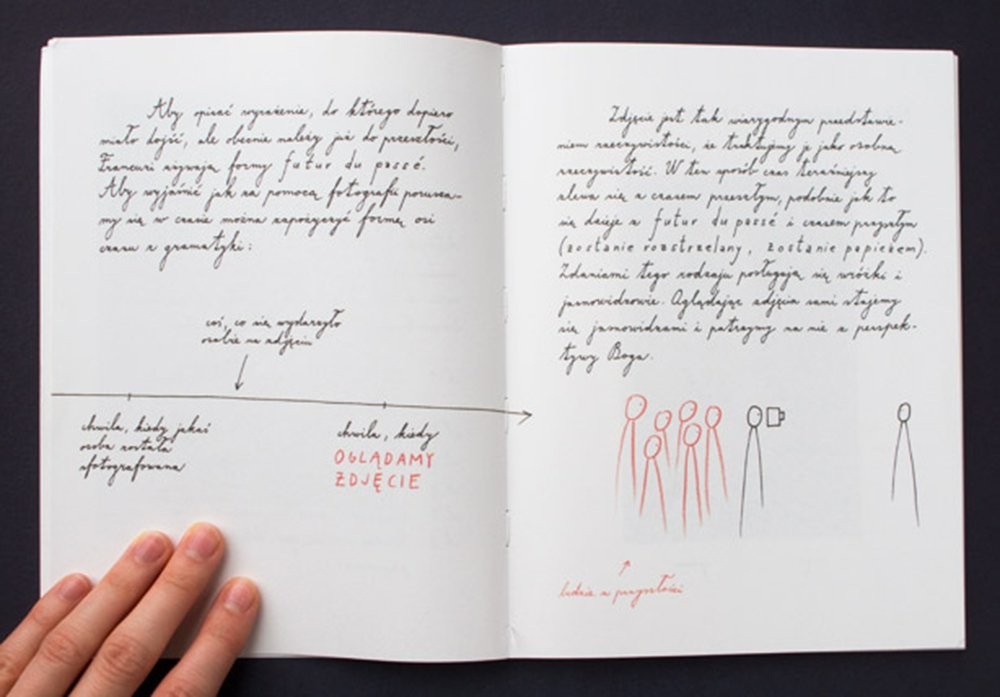 Aby opisać wyrażenie, do którego dopiero
miało dojść, ale obecnie należy już do przeszłości,
Francuzi używają formy futur du passé.
Aby wyjaśnić jak za pomocą fotografii porusza-
my się w czasie można zapożyczyć formę osi
czasu z gramatyki:
coś, co się wydarzyło
osobie na zdjęciu
chwila, kiedy jakaś
osoba została
sfotografowana
chwila, kiedy
OGLĄDAMY
ZDJĘCIE
Zdjęcie jest tak wiarygodnym przedstawie-
niem rzeczywistości, że traktujemy je jako osobną
rzeczywistość. W ten sposób czas teraźniejszy
zlewa się z czasem przeszłym, podobnie jak to
się dzieje z futur du passé i czasem przyszłym
(zostanie rozstrzelany, zostanie papieżem).
Zdaniami tego rodzaju posługują się wróżki i
jasnowidzowie. Oglądając zdjęcia sami stajemy
się jasnowidzami i patrzymy na nie z perspek-
tywy Boga.
ludzie z przyszłości